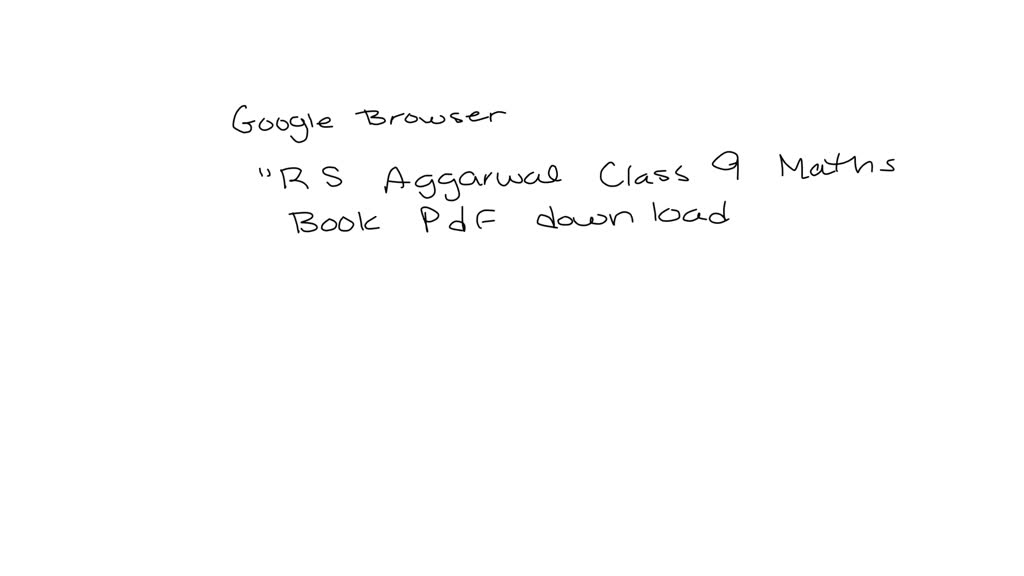 Google Browser
"RS Aggarwal Class 9 Maths
Book Pdf download